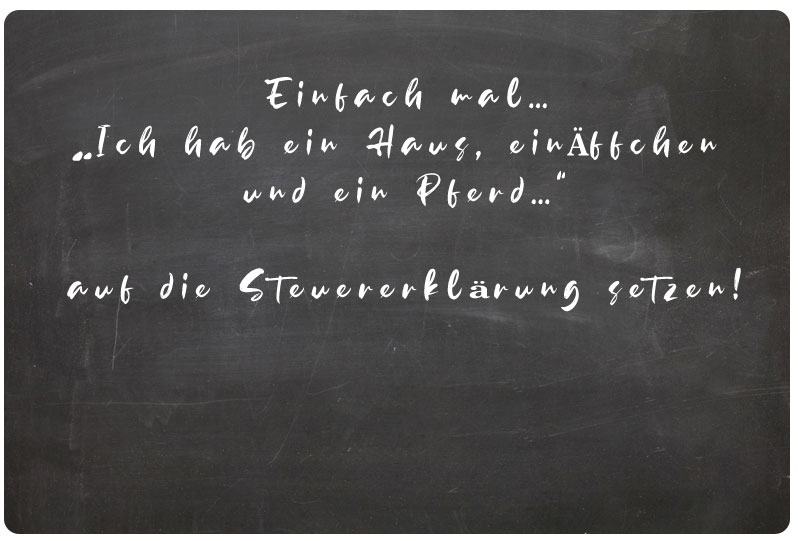 Einfach mal...
„Ich hab ein Haus, einÄffchen
und ein Pferd...“
auf die Steuererklärung setzen!